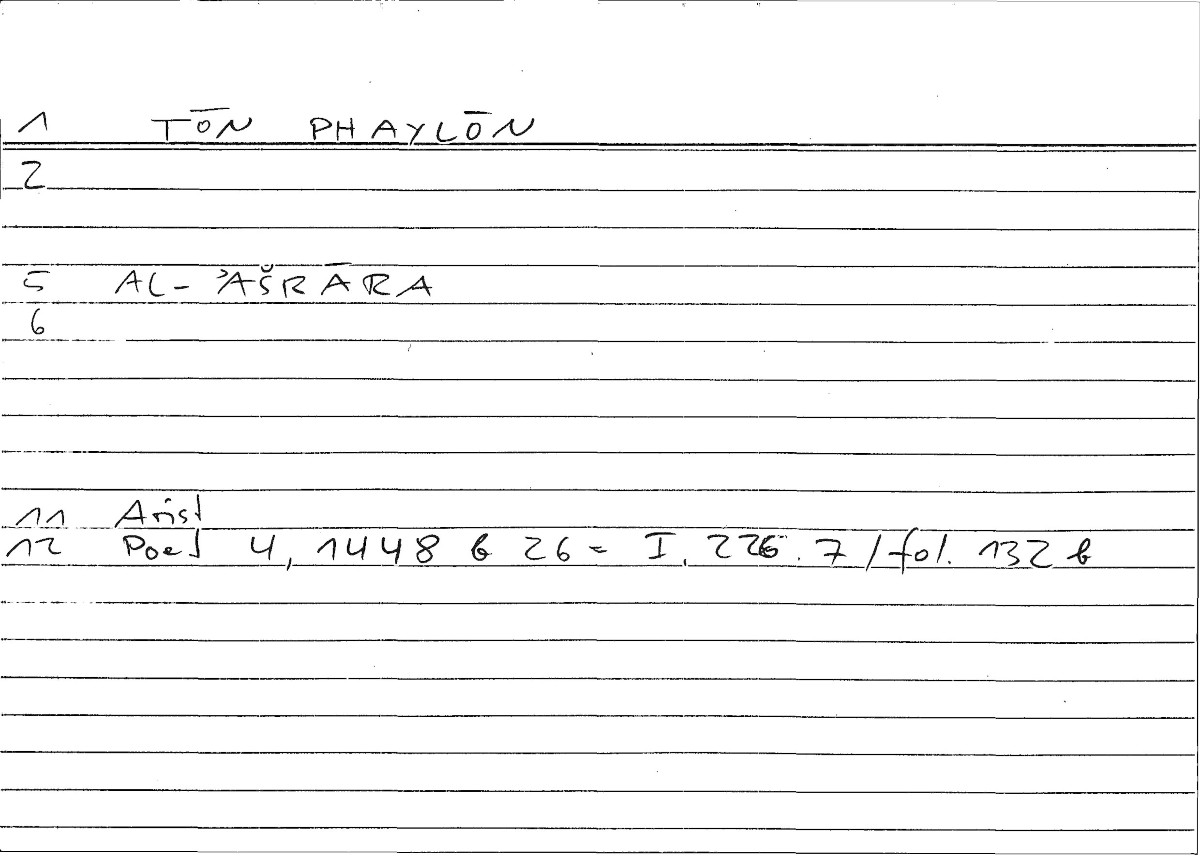 1 TŌN PHAYLŌN
2
5 AL-ʾAŠRĀRA
6
11 Arist
12 Poet 4, 1448 b 26 = I, 226.7 / fol. 132 b